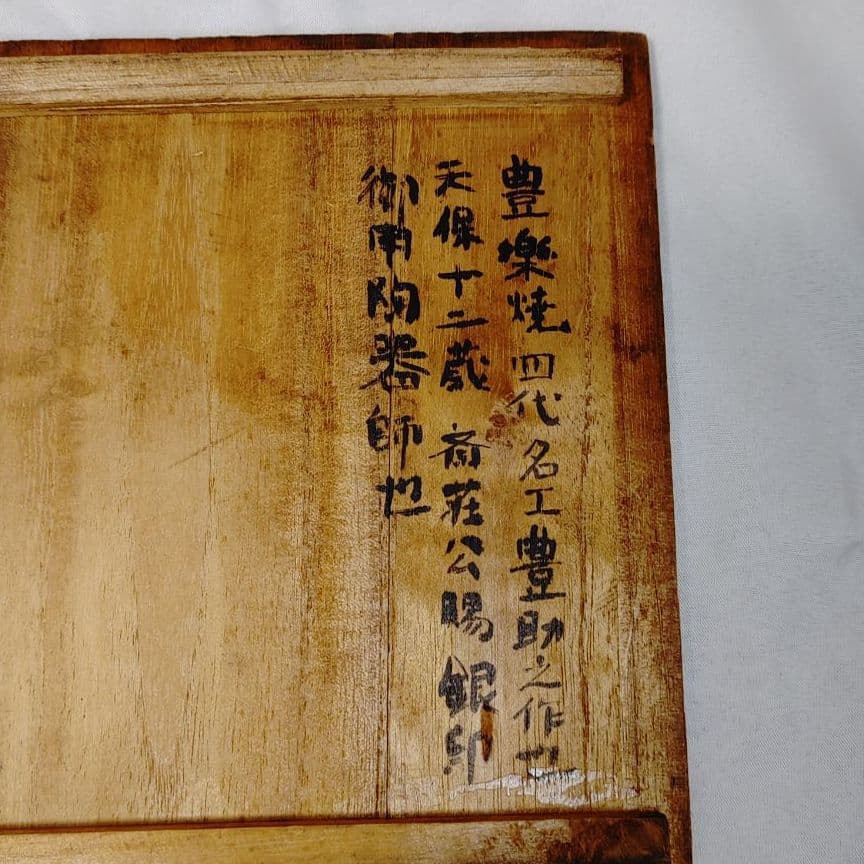 豊樂焼四代名工豊助之作也
天保十二歳斎荘公賜銀印
御用陶器師也